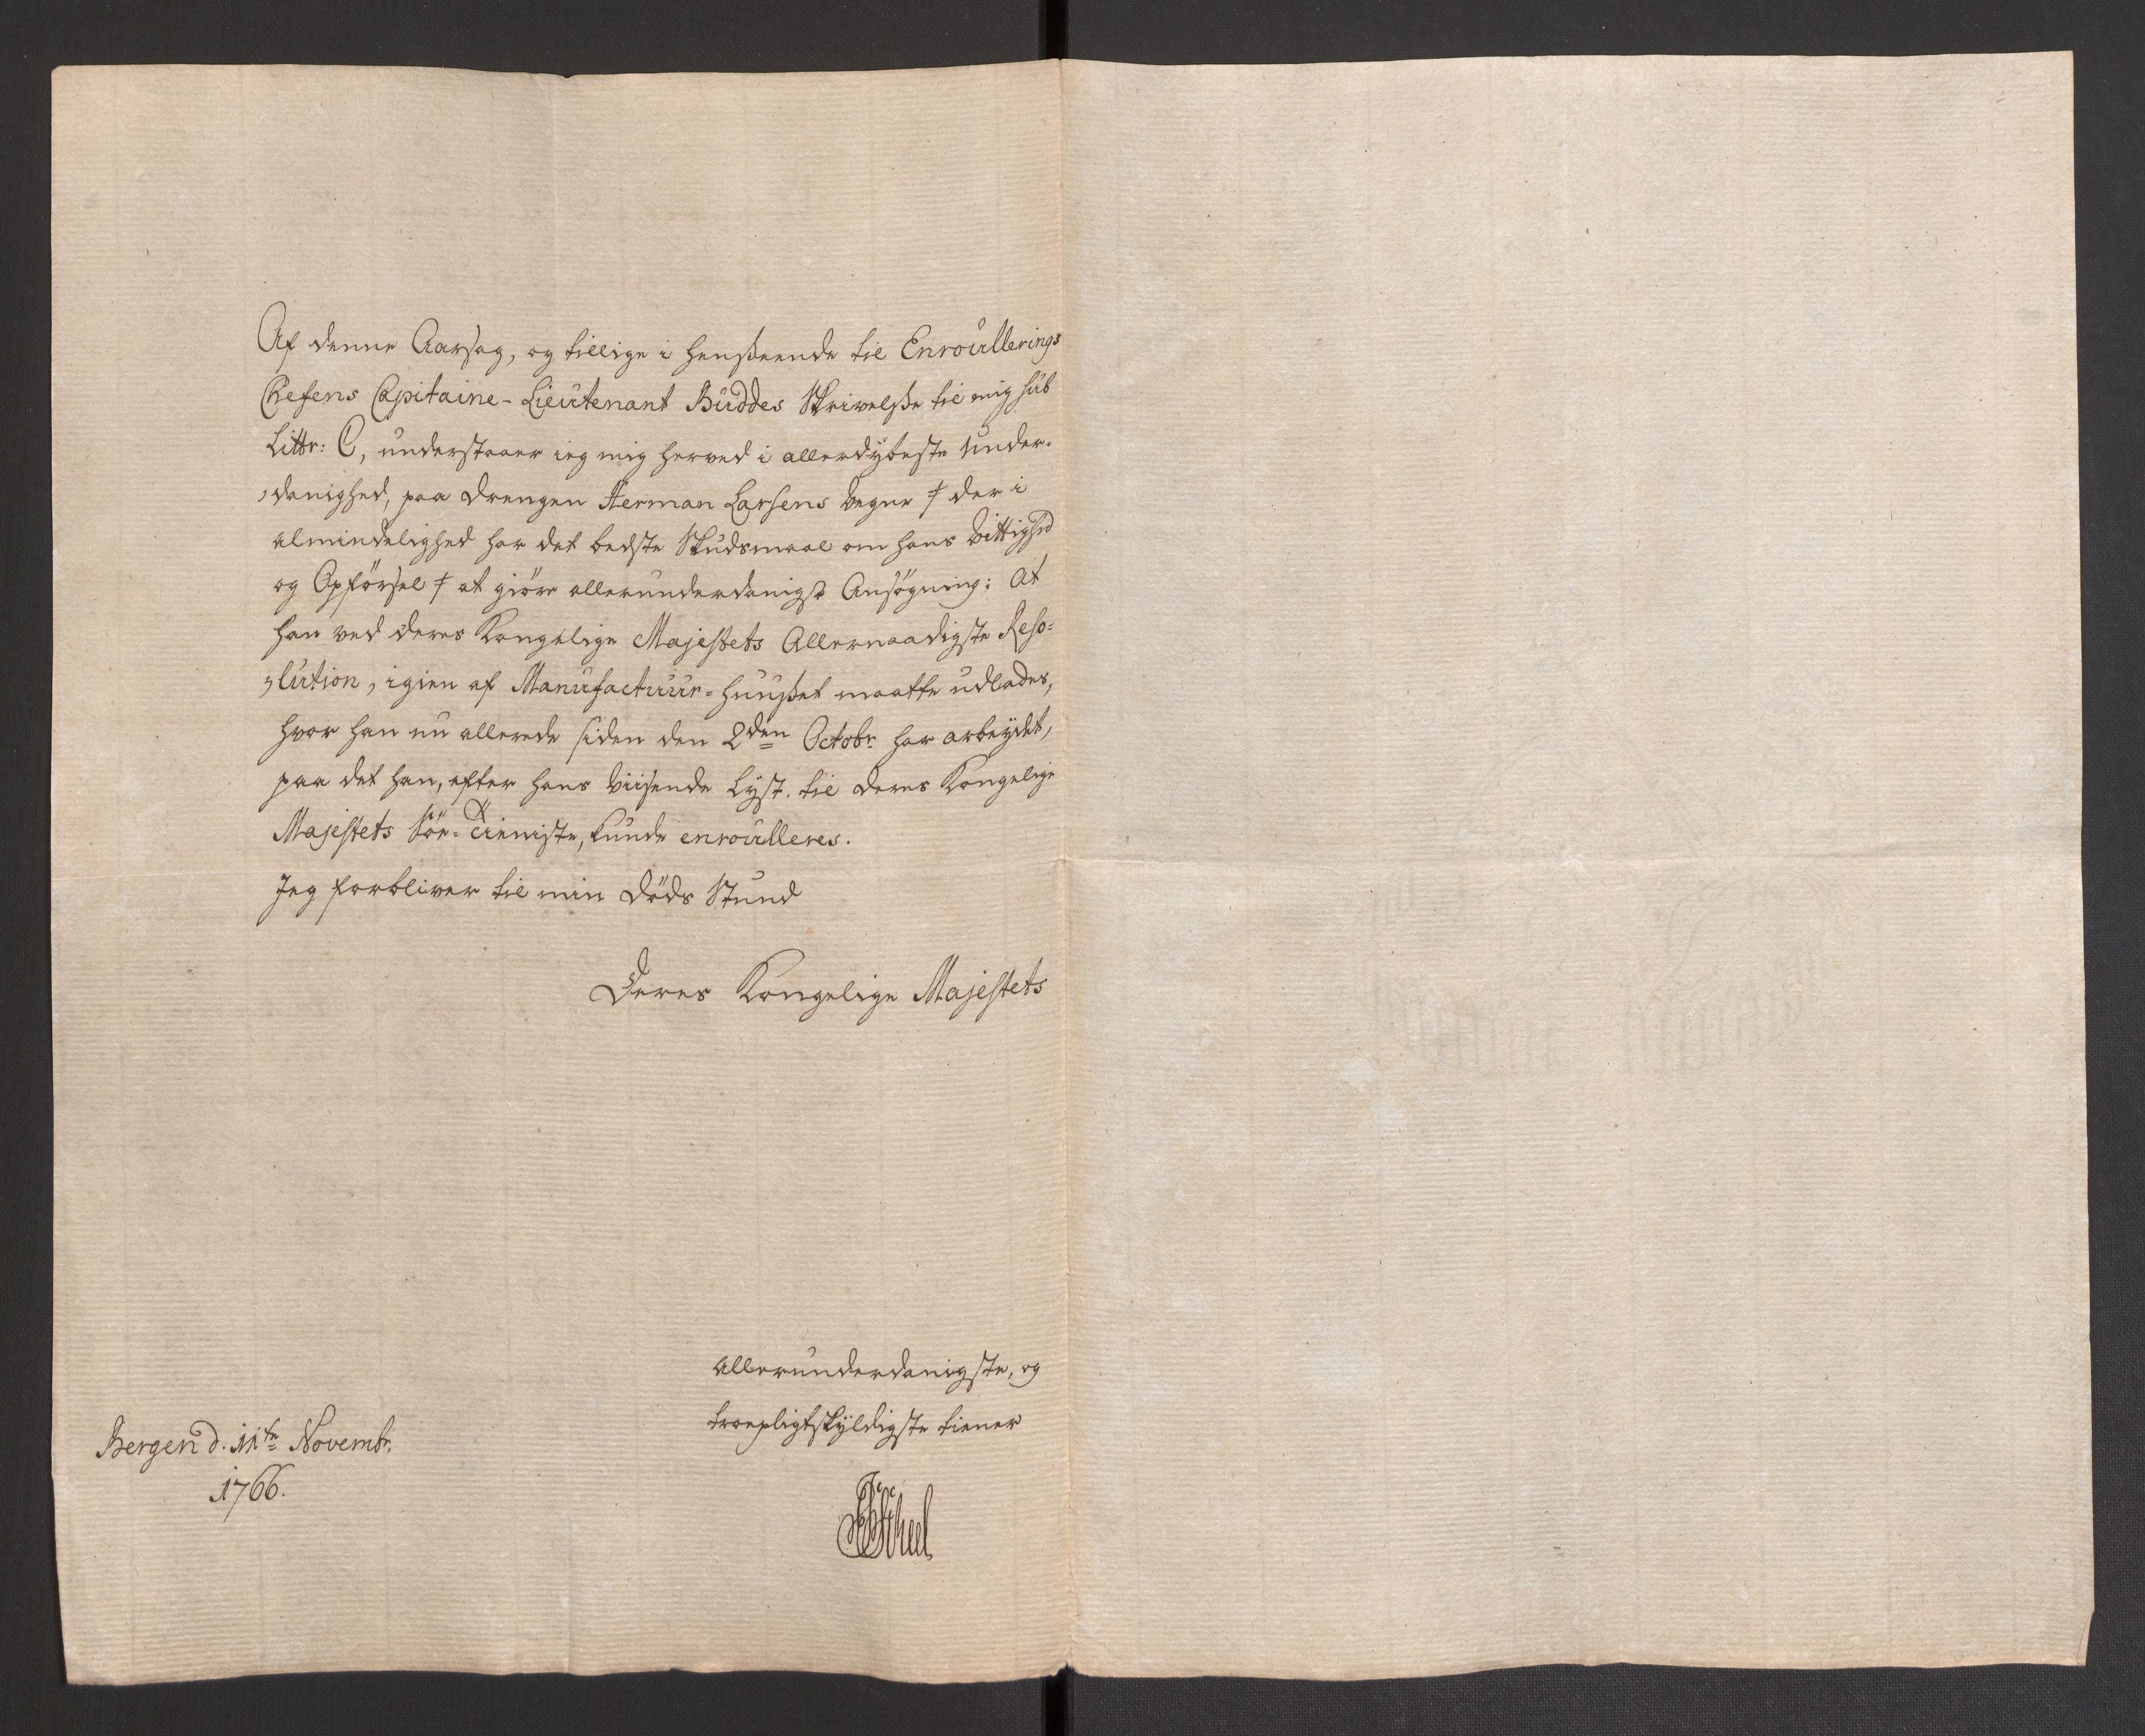 Af denne Aarsag, og tillige i henseende til Enroullerings
Chefens Capitaine-Lieutenant Buddes Skrivelse til mig sub
Littr: C, understaaer ieg mig herved i allerdybeste Under-
danighed, paa Drengen Herman Larsens Vegne /: der i
almindelighed har det bedste Skudsmaal om hans Vittighed
og Opförsel :/ at giöre allerunderdanigst Ansögning: At
han ved Deres Kongelige Majestets Allernaadigste Reso-
lution, igien af Manufactuur-Huuset maatte udlades,
hvor han nu allerede siden den 2den Octobr. har arbeydet,
paa det han, efter hans Viisende Lyst til Deres Kongelige
Majestets Söe-Tieniste, kunde enroulleres.
Jeg forbliver til min Döds Stund
Deres Kongelige Majestets
allerunderdanigste, og
troepligtskyldigste tiener
Bergen d. 11te Novembr.
1766.